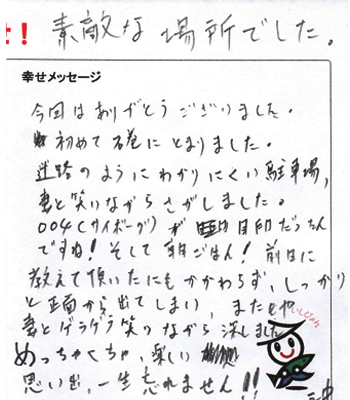 せ！ 素敵な場所でした。
幸せメッセージ
今回はありがとうございました。
初めて石巻にとまりました。
迷路のようにわかりにくい駐車場,
妻と笑いながらさがしました。
004(サイボーグ)が目印だったん
ですね！そして朝ごはん！前日に
教えて頂いたにもかかわらず、しっかり
と正面から出てしまい、またもや
妻とゲラゲラ笑いながら深しました
めっちゃくちゃ、楽しい
思い出、一生忘れません!!